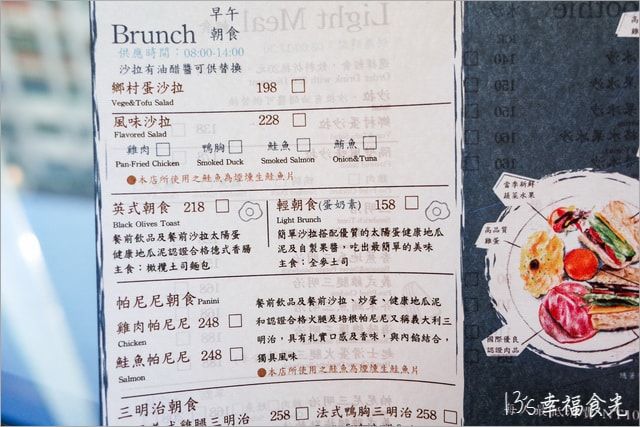 Brunch 早午朝食
供應時間：08:00-14:00
沙拉有油醋醬可供替換
鄉村蛋沙拉 198
Vege&Tofu Salad
風味沙拉 228
Flavored Salad
雞肉 鴨胸 鮭魚 鮪魚
Pan-Fried Chicken Smoked Duck Smoked Salmon Onion&Tuna
本店所使用之鮭魚為煙燻生鮭魚片
英式朝食 218
Black Olives Toast
餐前飲品及餐前沙拉太陽蛋
健康地瓜泥認證合格德式香腸
主食：橄欖土司麵包
輕朝食(蛋奶素) 158
Light Brunch
簡單沙拉搭配優質的太陽蛋健康地瓜
泥及自製果醬，吃出最簡單的美味
主食：全麥土司
帕尼尼朝食 Panini
雞肉帕尼尼 248
Chicken
鮭魚帕尼尼 248
Salmon
餐前飲品及餐前沙拉、炒蛋、健康地瓜泥
和認證合格火腿及培根帕尼尼又稱義大利三
明治，具有札實口感及香味，與內餡結合，
獨具風味
本店所使用之鮭魚為煙燻生鮭魚片
三明治朝食
258 法式鴨胸三明治 258
當季新鮮
蔬菜水果
高品質
雞蛋
國際優良
認證肉品
幸福食光